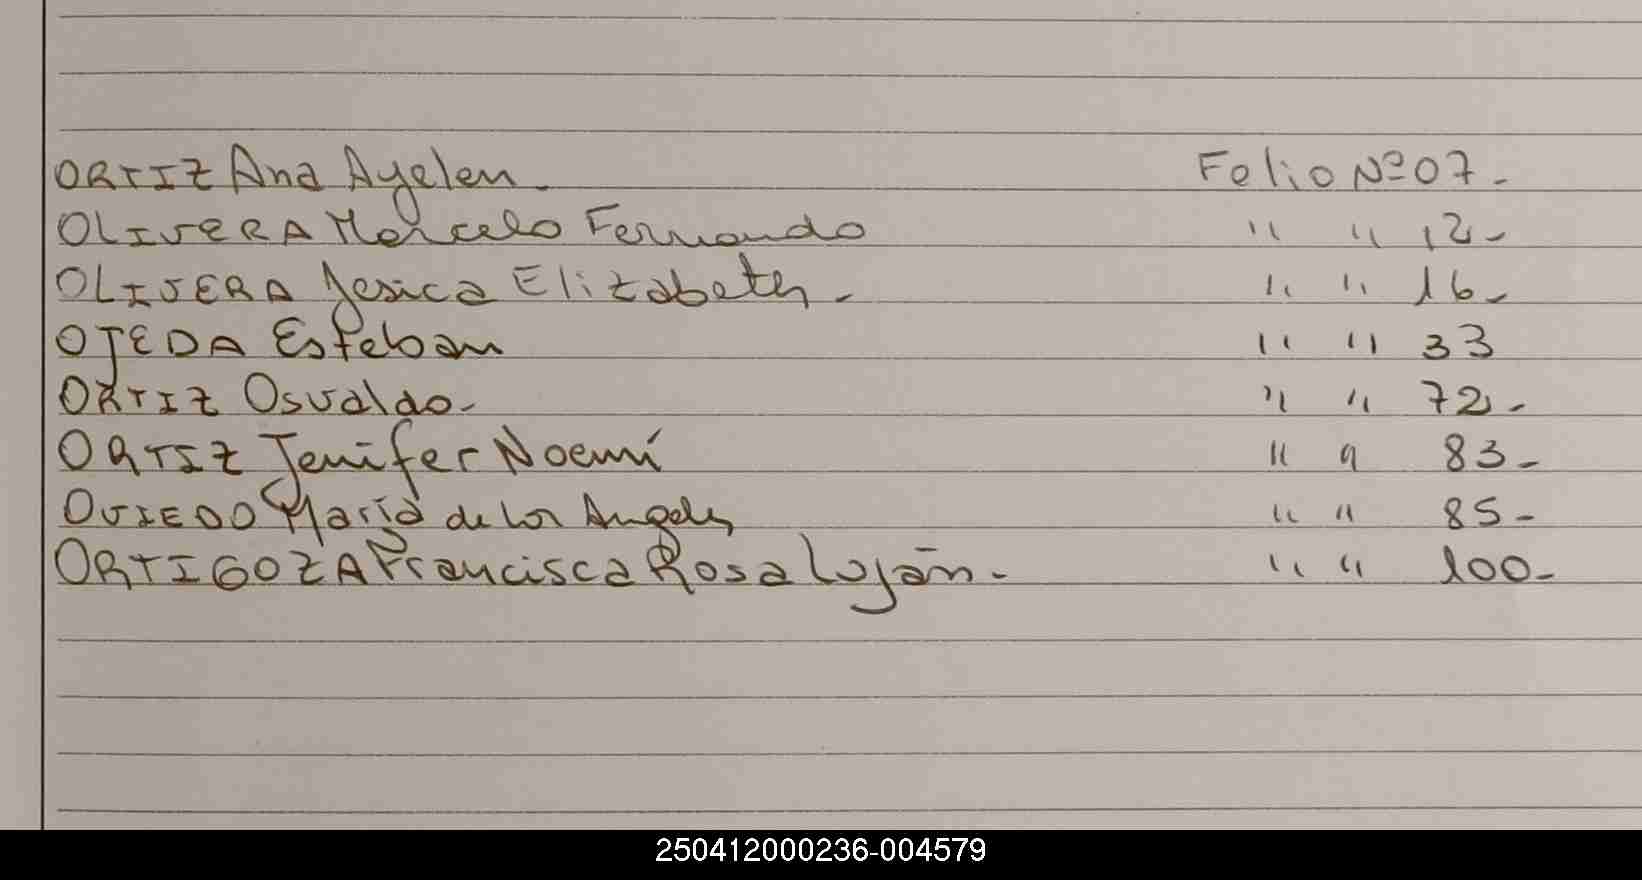 ORTIZ Ana Ayelen. Folio Nº 07-
OLIVERA Marcelo Fernando " " 12-
OLIVERA Jesica Elizabeth- " " 16-
OJEDA Esteban " " 33
ORTIZ Osvaldo- " " 72-
ORTIZ Jenifer Noemí " " 83-
OVIEDO María de los Angeles " " 85-
ORTIGOZA Francisca Rosa Luján- " " 100-
250412000236-004579